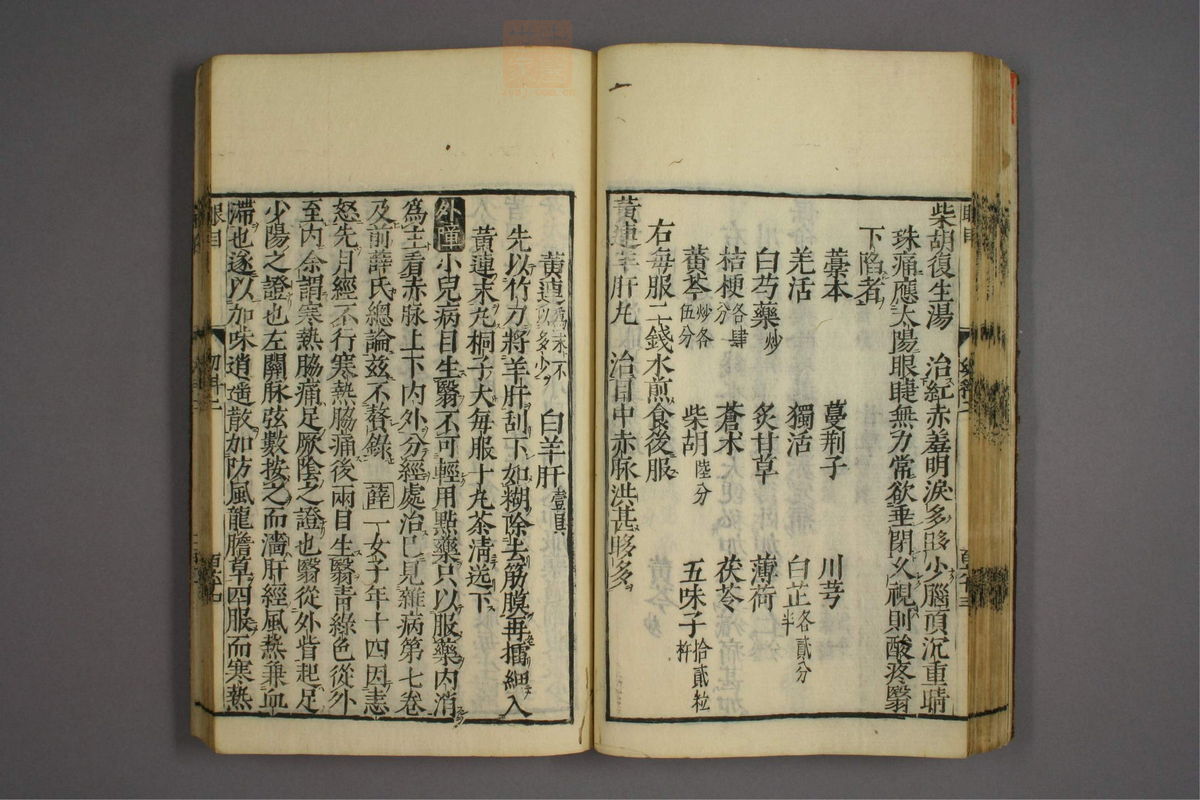 柴胡復生湯　治紅赤羞明淚多眵少腦頂沉重睛
珠痛應太陽眼睫無力常欲垂閉久視則酸疼翳
下陷者
藁本　蔓荆子　川芎
羌活　獨活　白芷各貳分半
白芍藥炒　炙甘草　薄荷
桔梗各肆分　蒼朮　茯苓
黄芩炒各伍分　柴胡陸分　五味子拾貳粒杵
右每服二錢水煎食後服
黄連羊肝丸　治目中赤脉洪甚眵多
黄連爲末不以多少　白羊肝壹具
先以竹刀將羊肝刮下如糊除去筋膜再擂細入
黄連末丸桐子大每服十丸茶清送下
外障小兒病目生翳不可輕用點藥只以服藥内消
爲主看赤脉上下内外分經處治已見雜病第七卷
及前薛氏總論兹不贅錄　薛一女子年十四因恚
怒先月經不行寒熱脇痛後兩目生翳青綠色從外
至内余謂寒熱脇痛足厥陰之證也翳從外眥起足
少陽之證也左關脉弦數按之而濇肝經風熱兼血
滯也遂以加味逍遥散加防風龍膽草四服而寒熱
眼目